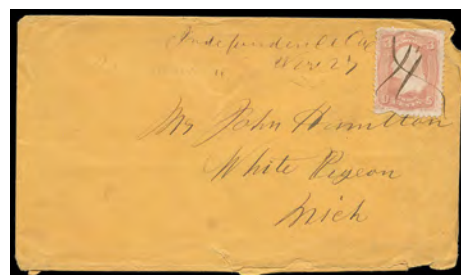 Independence Ca
Mr John Hamilton
White Pigeon
Mich